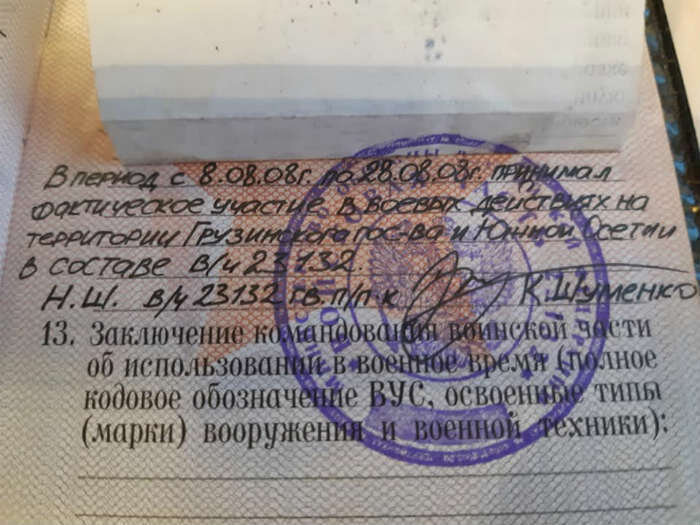 В период с 8.08.08г. по 28.08.08г. принимал
фактическое участие в боевых действиях на
территории Грузинского гос-ва и Южной Осетии
в составе в/ч 23132.
Н.Ш. в/ч 23132 гв. п/п-к К. Шуменко
13. Заключение командования воинской части
об использовании в военное время (полное
кодовое обозначение ВУС, освоенные типы
(марки) вооружения и военной техники):